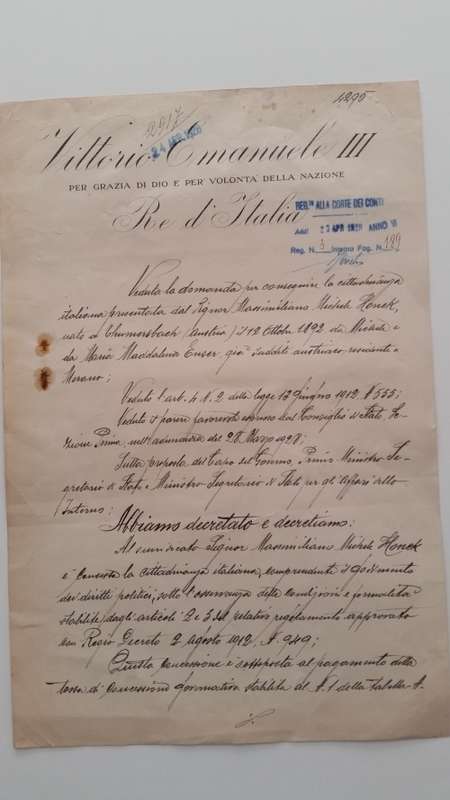 4295
2917
24 APR. 1928
Vittorio Emanuele III
PER GRAZIA DI DIO E PER VOLONTÀ DELLA NAZIONE
Re d'Italia
REG.TO ALLA CORTE DEI CONTI
Addì 23 APR 1928 ANNO VI
Reg. N. 5 Interno Pag. N. 189
Veduta la domanda per conseguire la cittadinanza
italiana presentata dal Signor Massimiliano Michele Honeck,
nato a (Austria) il 12 Ottobre 1892 da Michele e
da Maria Maddalena Enser, già suddito austriaco residente a
Merano;
Veduto l'art. 4 N. 2 della legge 13 Giugno 1912, N. 555;
Veduto il parere favorevole emesso dal Consiglio di Stato, Se-
zione Prima, nell'adunanza del 28 Marzo 1928;
Sulla proposta del Capo del Governo, Primo Ministro Se-
gretario di Stato e Ministro Segretario di Stato per gli Affari dello
Interno;
Abbiamo decretato e decretiamo:
Al nominato Signor Massimiliano Michele Honeck
è concessa la cittadinanza italiana, comprendente il godimento
dei diritti politici, sotto l'osservanza delle condizioni e formalità
stabilite dagli articoli 2 e 3 del relativo regolamento approvato
con Regio Decreto 2 Agosto 1912, N. 949;
Questa concessione è sottoposta al pagamento della
tassa di concessione governativa stabilita al N. 1 della tabella A.